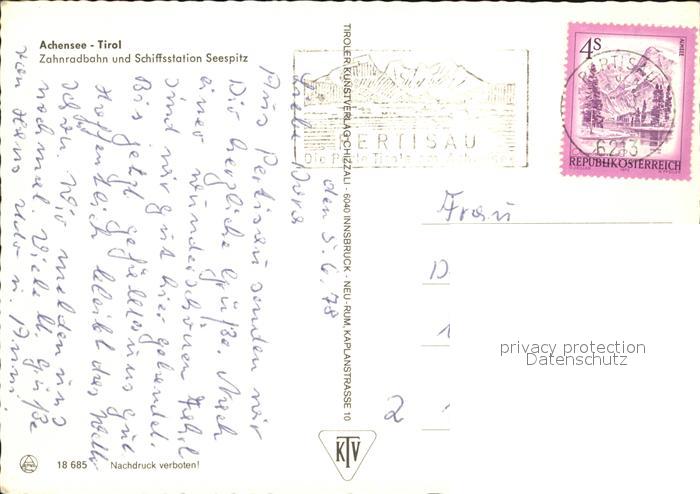 Achensee - Tirol
Zahnradbahn und Schiffsstation Seespitz
den 5.6.78
Liebe Dora
Aus Pertisau senden wir
Dir herzliche Grüße. Nach
einer wunderschönen Fahrt
sind wir gut hier gelandet.
Bis jetzt gefällt uns gut
Hoffentlich bleibt das Wetter
schön. Wir melden uns
nochmal. Viele lb. Grüße
von Hans u.
TIROLER KUNSTVERLAG CHIZZALI · 6040 INNSBRUCK - NEU-RUM, KAPLANSTRASSE 10
PERTISAU
Die Perle Tirols am Achensee
4S
ALMSEE
PERTISAU
6213
REPUBLIK ÖSTERREICH
Frau
D
1
2
privacy protection
Datenschutz
KTV
18 685 Nachdruck verboten!